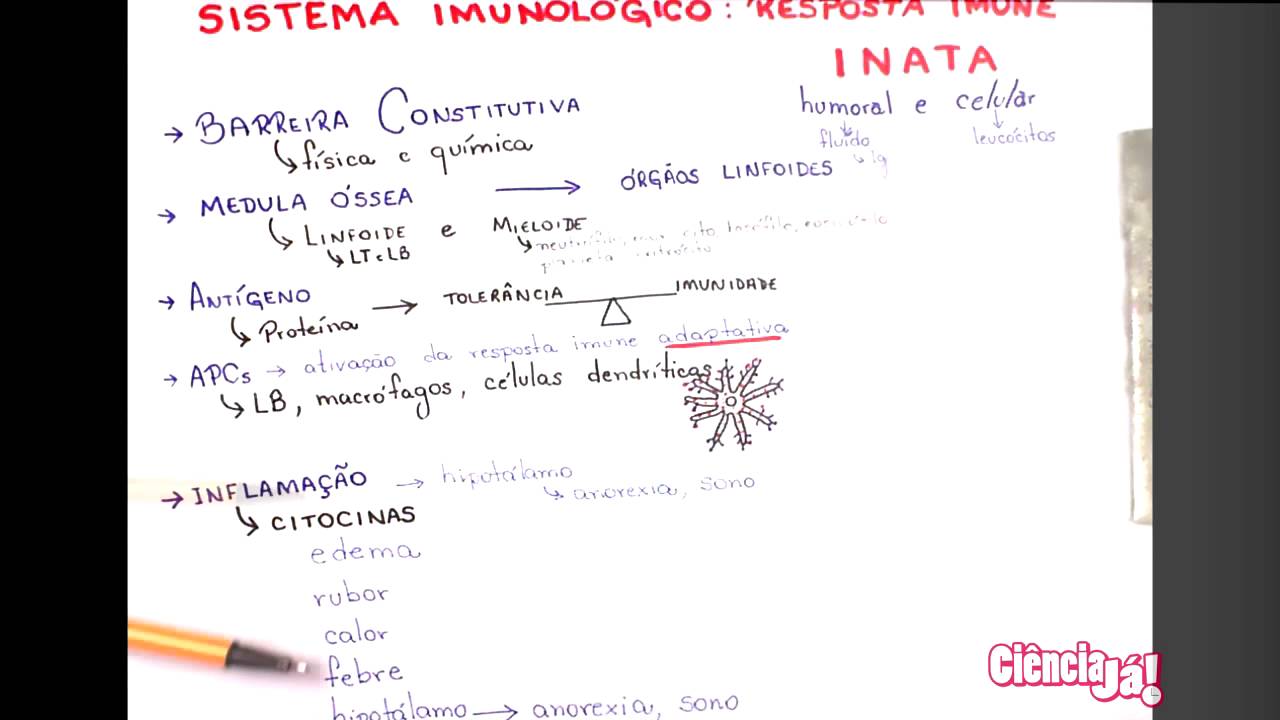 SISTEMA IMUNOLÓGICO: RESPOSTA IMUNE
INATA
humoral e celular
fluído leucócitos
Ig
→ BARREIRA CONSTITUTIVA
física e química
→ MEDULA ÓSSEA → ÓRGÃOS LINFOIDES
LINFOIDE e MIELOIDE
LT e LB
→ ANTÍGENO → TOLERÂNCIA IMUNIDADE
Proteína
→ APCs → ativação da resposta imune adaptativa
LB, macrófagos, células dendríticas
→ INFLAMAÇÃO → hipotálamo
anorexia, sono
CITOCINAS
edema
rubor
calor
febre
hipotálamo → anorexia, sono
Ciência Já!